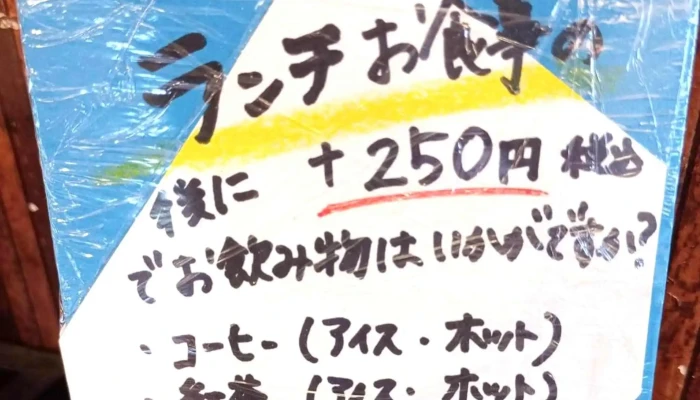 ランチお食事の
様に +250円 税込
でお飲み物はいかがですか?
・コーヒー (アイス・ホット)
・紅茶 (アイス・ホット)